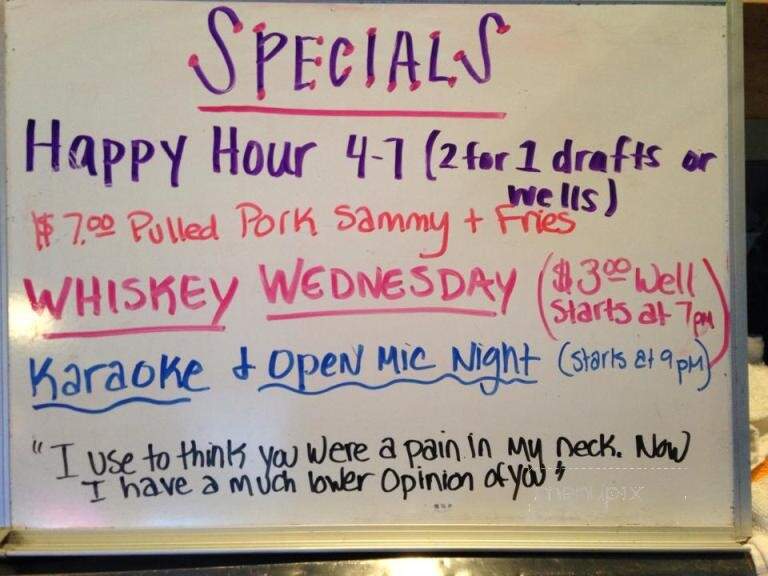 SPECIALS
Happy Hour 4-7 (2 for 1 drafts or
wells)
$7.00 Pulled Pork Sammy + Fries
WHISKEY WEDNESDAY ($3.00 Well
starts at 7pm)
Karaoke & Open Mic Night (starts at 9pm)
"I use to think you were a pain in my neck. Now
I have a much lower opinion of you"
menupix